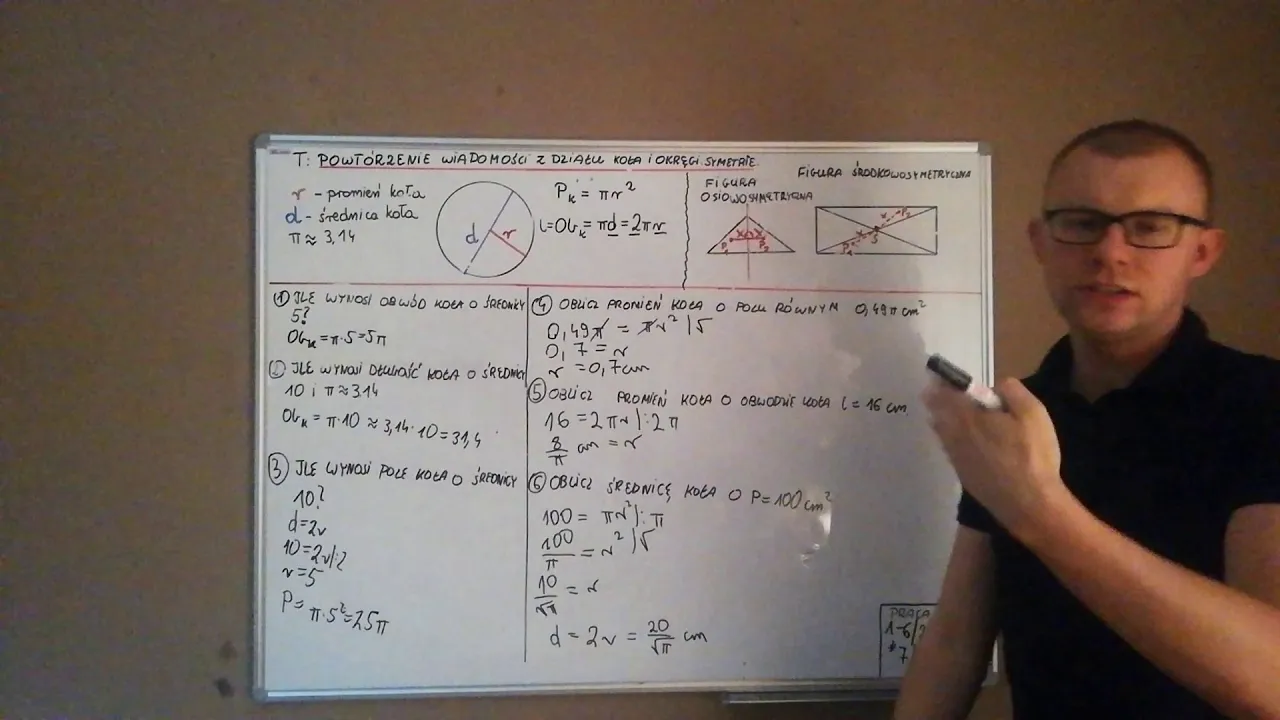 T: POWTÓRZENIE WIADOMOŚCI Z DZIAŁU KOŁA I OKRĘGI. SYMETRIE
r - promień koła
d - średnica koła
π ≈ 3,14
d r
P_k = πr²
l = Ob_k = πd = 2πr
FIGURA
OSIOWOSYMETRYCZNA
x x
P₁ P₂
FIGURA ŚRODKOWOSYMETRYCZNA
x P₂
x S
P₁
① ILE WYNOSI OBWÓD KOŁA O ŚREDNICY
5?
Ob_k = π·5 = 5π
② ILE WYNOSI DŁUGOŚĆ KOŁA O ŚREDNICY
10 i π ≈ 3.14
Ob_k = π·10 ≈ 3,14·10 = 31,4
③ ILE WYNOSI POLE KOŁA O ŚREDNICY
10?
d = 2r
10 = 2r |:2
r = 5
P = π·5² = 25π
④ OBLICZ PROMIEŃ KOŁA O POLU RÓWNYM 0,49π cm²
0,49π = πr² |√
0,7 = r
r = 0,7cm
⑤ OBLICZ PROMIEŃ KOŁA O OBWODZIE KOŁA l = 16 cm
16 = 2πr |:2π
8/π cm = r
⑥ OBLICZ ŚREDNICĘ KOŁA O P = 100 cm²
100 = πr² |:π
100/π = r² |√
10/√π = r
d = 2r = 20/√π cm
PRACA
1-6/
*7